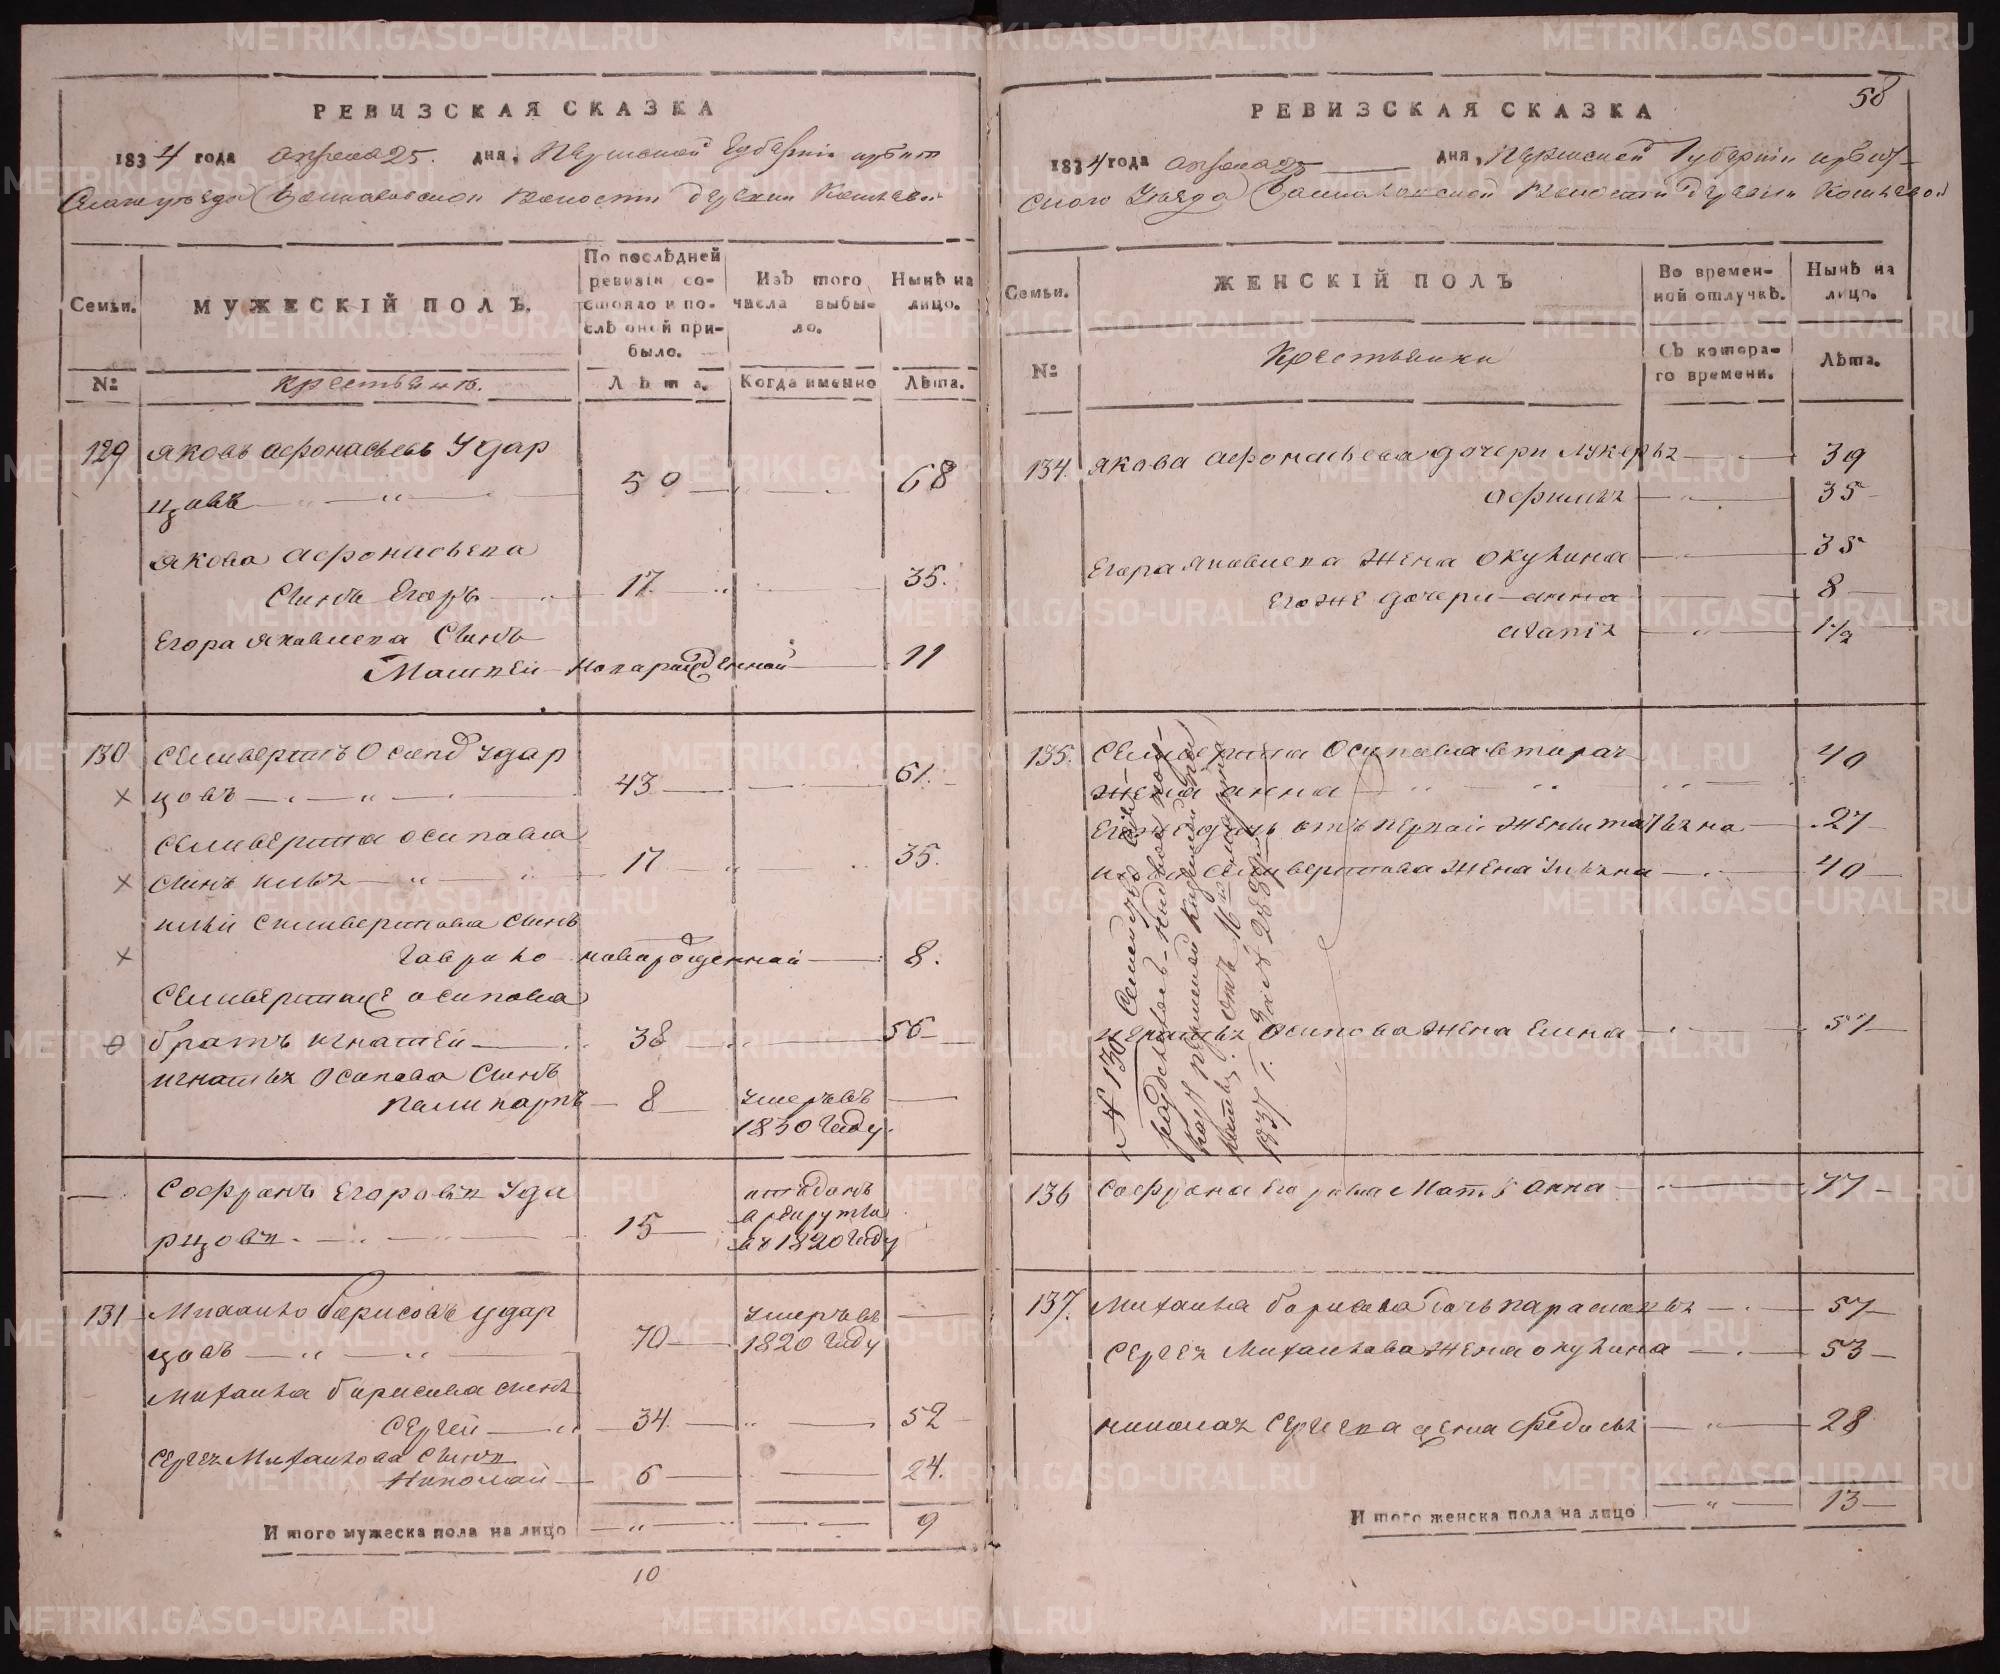 РЕВИЗСКАЯ СКАЗКА
1834 года апреля 25. дня, Пермской Губернiи Ирбит
скаго уезда волости деревни
Семьи.
МУЖЕСКIЙ ПОЛЪ.
По послѣдней ревизiи состояло и послѣ оной прибыло.
Изъ того числа выбыло.
Нынѣ на лицо.
№
Крестьянъ.
Лѣта.
Когда именно
Лѣта.
129 Яковъ Афонасьевъ Удар
цовъ 50 68
Якова Афонасьева
Сынъ Егоръ 17 35.
Егора Яковлева Сынъ
Матвей новорожденной 11
130 Селиверстъ Осипов Удар
цовъ 43 61.
Селиверста Осипова
Сынъ Илья 17 35.
Ильи Селиверстова Сынъ
Гаврило новорожденной 8.
Селиверста же Осипова
братъ Игнатей 38 56
Игнатья Осипова Сынъ
Поликарпъ 8 умеръ въ
1830 году.
Софронъ Егоровъ Уда
рцовъ 15 отъданъ
в рекруты
въ 1820 году
131 Михайло Борисовъ Удар
цовъ 70 умеръ въ
1820 году
Михайла Борисова сынъ
Сергей 34. 52
Сергея Михайлова Сынъ
Николай 6 24.
И того мужеска пола на лицо 9
10
58
РЕВИЗСКАЯ СКАЗКА
1834 года апреля 25 дня, Пермской Губернiи Ирбит
скаго Уезда волости деревни
Семьи.
ЖЕНСКIЙ ПОЛЪ
Во временной отлучкѣ.
Нынѣ на лицо.
№
Крестьянки
Съ котораго времени.
Лѣта.
134. Якова Афонасьева дочери Лукерья 39
Афимья 35
Егора Яковлева жена Окулина 35
Егоже дочери Анна 8
1½
135. Селиверста Осипова вторая
жена Анна 40
Егоже дочь отъ первай жены Татьяна 27
Ильи Селиверстова жена Ульяна 40
Игнатья Осипова жена Елена 57
№ 130 Семейство
1837 г.
136 Софрона Егорова Мать Анна 77
137. Михайла Борисова дочь Парасковья 57
Сергея Михайлова жена Окулина 53
Николая Сергеева жена Федосья 28
И того женска пола на лицо 13
METRIKI.GASO-URAL.RU